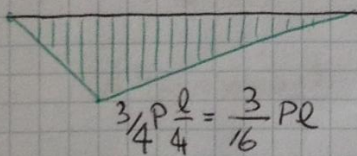 3/4 P l/4 = 3/16 Pl